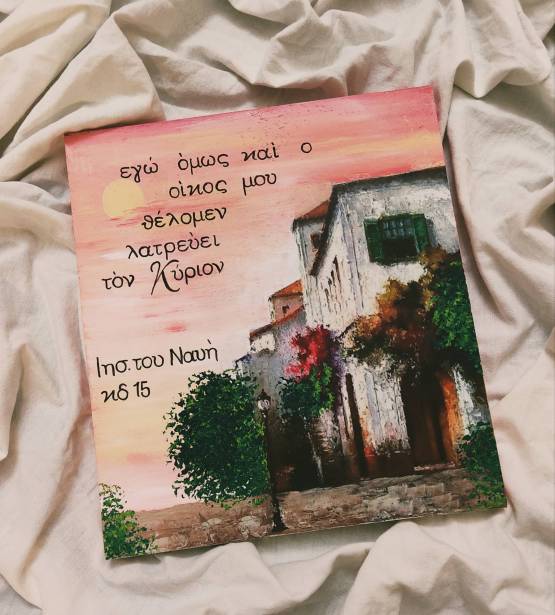 εγώ όμως καὶ ο
οἰκος μου
θέλομεν
λατρεὐει
τὸν Κύριον
Ιησ.του Ναυὴ
κδ 15